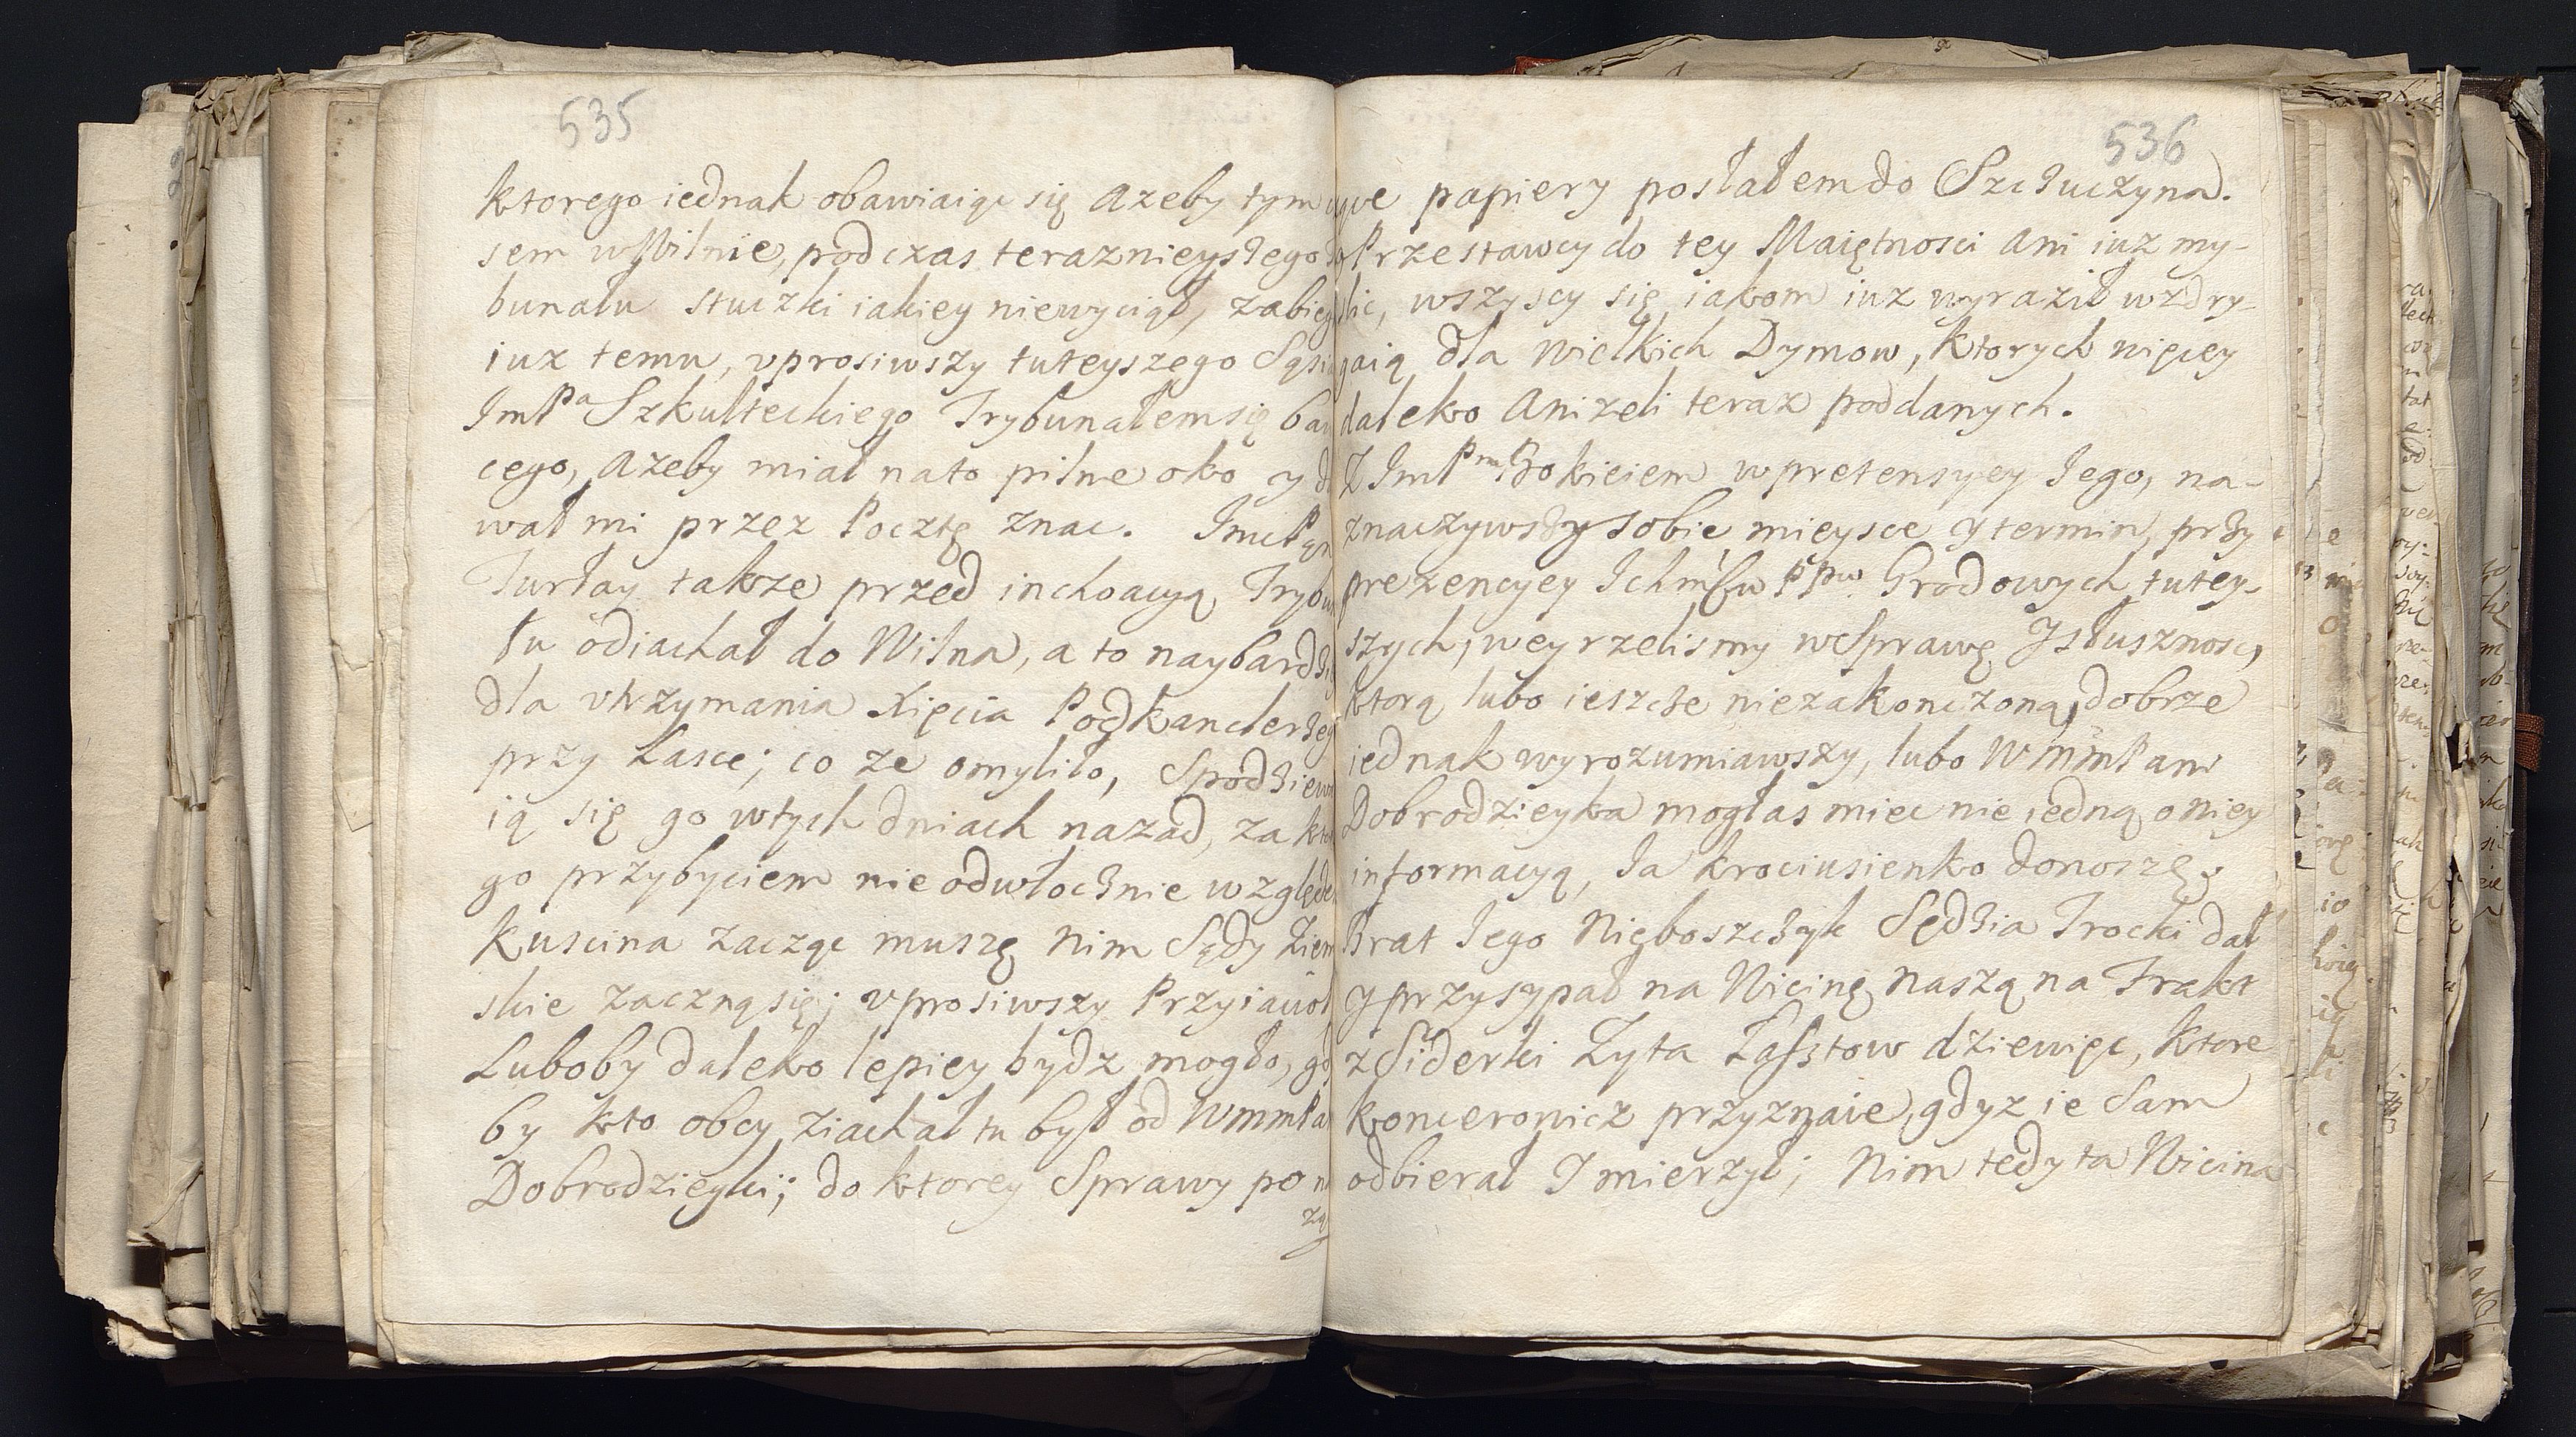 535
ktorego iednak obawiaiąc się Azeby tym
sem w Wilnie, podczas teraznieyszego
bunału stuczki iakiey niewyciął, zabieg
iuz temu, vprosiwszy tuteyszego Sąsi
ImPa Szkulteckiego Trybunałem się baw
cego, Azeby miał nato pilne oko y d
wał mi przez Pocztę znac. ImcPan
Turłay takze przed inchoacyą Trybu
łu odiachał do Wilna, a to naybardzi
dla vtrzymania Xięcia Podkanclerzeg
przy Lasce; co ze omyliło, Spodziewa
ią się go wtych dniach nazad, za kto
go przybyciem nieodwłocznie względe
Kuscina zacząc muszę nim Sądy Ziem
skie zaczną się; vprosiwszy Przyiaciół
Luboby daleko lepiey bydz mogło, gd
by kto obcy ziachał tu był od WmmPa
Dobrodzieyki; do ktorey Sprawy po
536
we papiery posłałem do Szczuczyna.
Przestawcy do tey Maiętnosci Ani iuz my-
lic, wszyscy się iakom iuz wyraził wzdry-
gaią dla Wielkich Dymow, ktorych więcey
daleko Anizeli teraz poddanych.
Z ImPm Bokieiem w pretensyey Iego, na-
znaczywszy sobie mieysce y termin, przy
prezencyey Ichmściw PPw Grodowych tutey-
szych, weyrzelismy wSprawę Y słusznosc,
ktorą lubo ieszcze niezakonczoną, dobrze
iednak wyrozumiawszy, lubo WmmPani
Dobrodzieyka mogłas miec nie iedną o niey
informacyą, Ia krociusienko donoszę.
Brat Iego Nięboszczyk Sędzia Trocki dał
y przysypał na Wicinę naszą na Trakt
z Siderki Zyta Łasztow dziewięc, ktore
Konceronicz przyznaie, gdyz ie Sam
odbierał I mierzył; Nim tedy ta Wicina